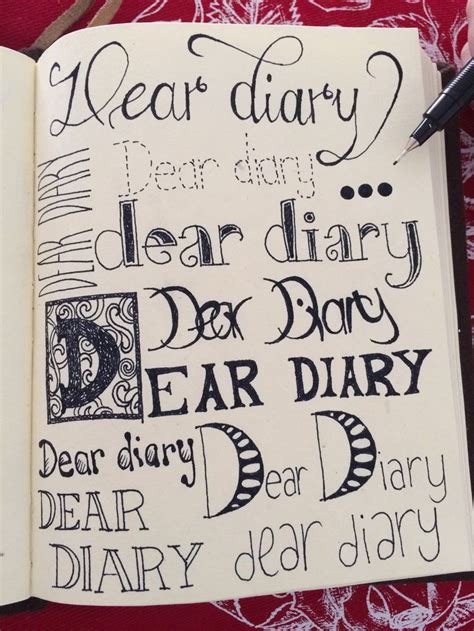 Dear diary
...
DEAR DIARY
Dear diary
dear diary
Dear Diary
DEAR DIARY
Dear diary
Dear Diary
DEAR
DIARY
dear diary